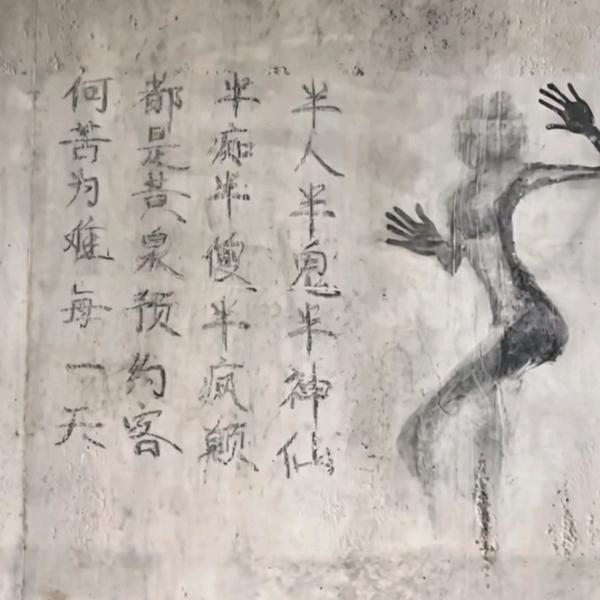 半人半鬼半神仙
半痴半傻半疯颠
都是黄泉预约客
何苦为难每一天